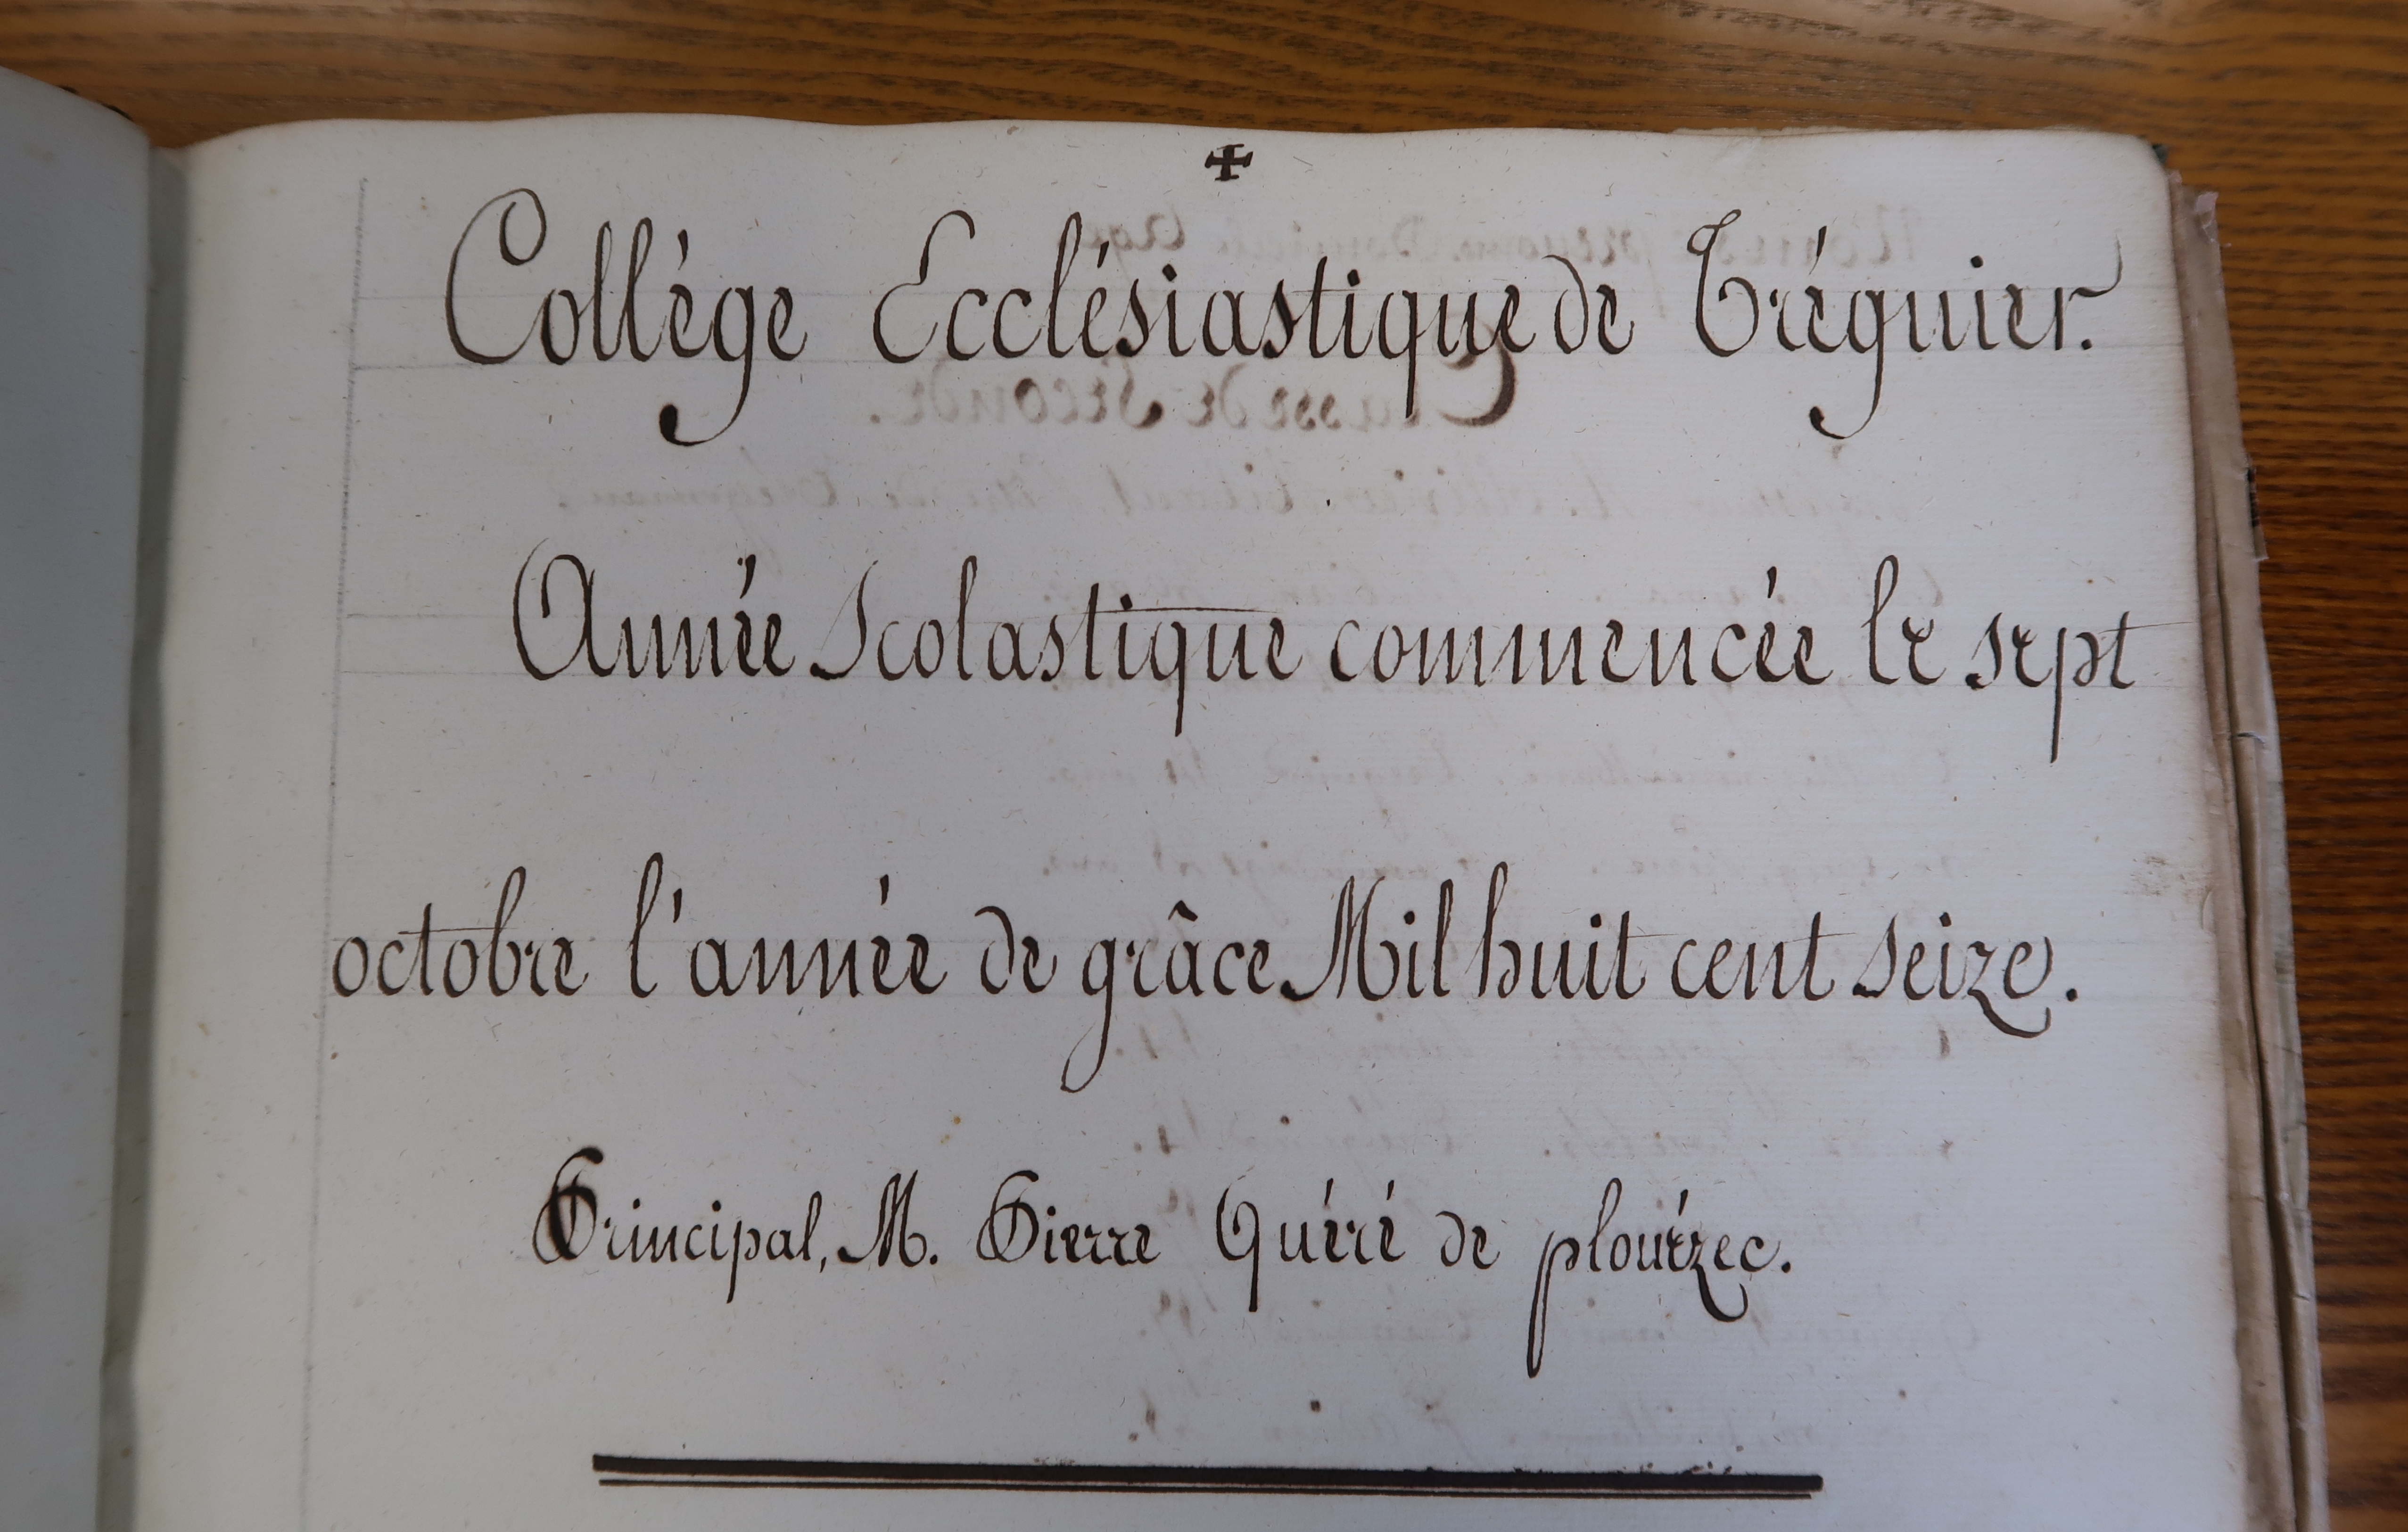 Collége Ecclésiastique de Tréguier.
Année Scolastique commencée le sept
octobre l'année de grâce Mil huit cent seize.
Principal, M. Pierre Quéré de plouézec.